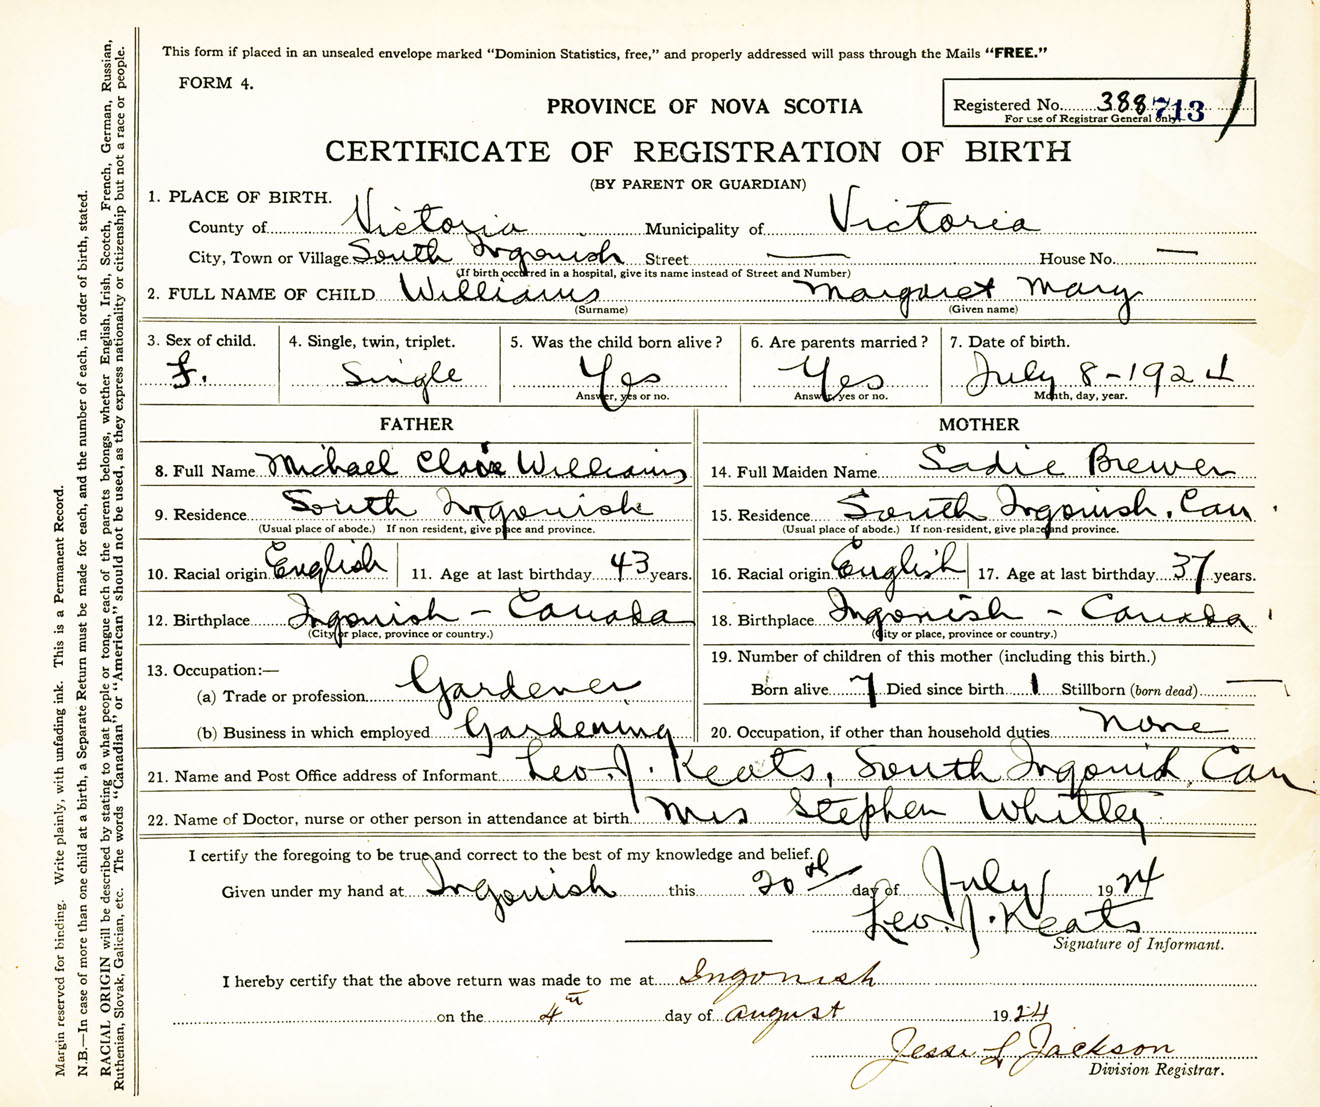 This form if placed in an unsealed envelope marked "Dominion Statistics, free," and properly addressed will pass through the Mails "FREE."
FORM 4.
PROVINCE OF NOVA SCOTIA
Registered No. 388 713
For use of Registrar General only
CERTIFICATE OF REGISTRATION OF BIRTH
(BY PARENT OR GUARDIAN)
1. PLACE OF BIRTH.
County of Victoria Municipality of Victoria
City, Town or Village South Ingonish Street — House No. —
(If birth occurred in a hospital, give its name instead of Street and Number)
2. FULL NAME OF CHILD Williams Margaret Mary
(Surname) (Given name)
3. Sex of child. 4. Single, twin, triplet. 5. Was the child born alive? 6. Are parents married? 7. Date of birth.
F. Single Yes Yes July 8-1924
Answer, yes or no. Answer, yes or no. Month, day, year.
FATHER MOTHER
8. Full Name Michael Williams 14. Full Maiden Name Sadie Brewer
9. Residence South Ingonish 15. Residence South Ingonish, Can
(Usual place of abode.) If non resident, give place and province. (Usual place of abode.) If non-resident, give place and province.
10. Racial origin English 11. Age at last birthday 43 years. 16. Racial origin English 17. Age at last birthday 37 years.
12. Birthplace Ingonish - Canada 18. Birthplace Ingonish - Canada
(City or place, province or country.) (City or place, province or country.)
13. Occupation:— 19. Number of children of this mother (including this birth.)
(a) Trade or profession Gardener Born alive 7 Died since birth 1 Stillborn (born dead) —
(b) Business in which employed Gardening 20. Occupation, if other than household duties None
21. Name and Post Office address of Informant Leo. J. Keats, South Ingonish, Can
22. Name of Doctor, nurse or other person in attendance at birth Mrs Stephen Whitley
I certify the foregoing to be true and correct to the best of my knowledge and belief.
Given under my hand at Ingonish this 20th day of July 1924
Leo. J. Keats
Signature of Informant.
I hereby certify that the above return was made to me at Ingonish
on the 4th day of August 1924
Jesse L Jackson
Division Registrar.
Margin reserved for binding. Write plainly, with unfading ink. This is a Permanent Record.
N.B.—In case of more than one child at a birth, a Separate Return must be made for each, and the number of each, in order of birth, stated.
RACIAL ORIGIN will be described by stating to what people or tongue each of the parents belongs, whether English, Irish, Scotch, French, German, Russian,
Ruthenian, Slovak, Galician, etc. The words "Canadian" or "American" should not be used, as they express nationality or citizenship but not a race or people.